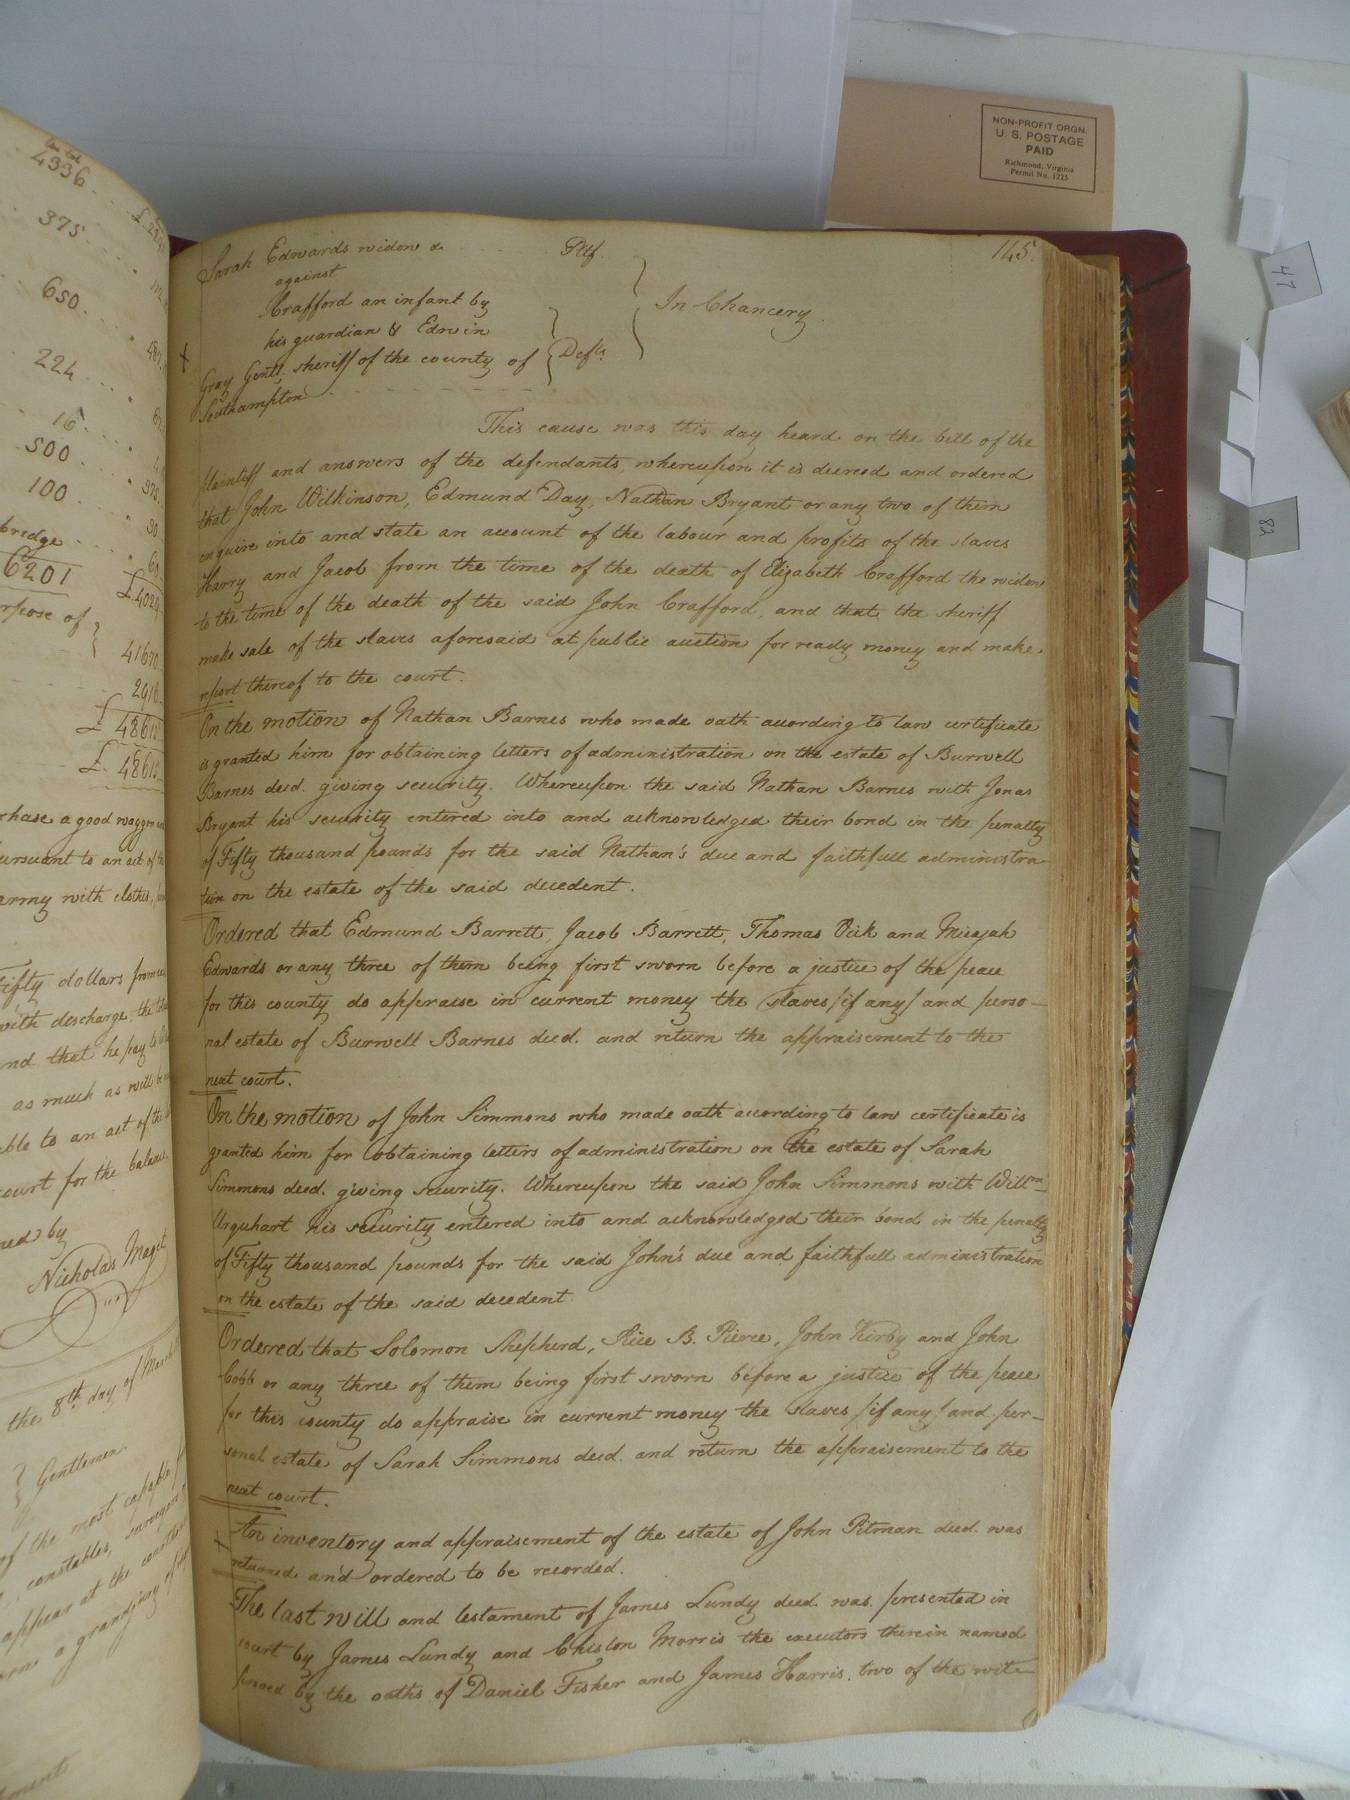 NON-PROFIT ORGN.
U. S. POSTAGE
PAID
Richmond, Virginia
Permit No. 1225
47
82
4996
375
650
224
16
500
100
6201
rpose of
41670
£ 48615
£ 48615
rchase a good waggon
ursuant to an act of the
army with clothes,
Fifty dollars from
with discharge the
nd that he pay
as much as will be
able to an act of the
court for the balance
ned by
Nicholas Maget
the 8th day of March
Gentlemen
of the most capable
constables, surveyors
appear at the courthouse
a grandjury of
145.
Sarah Edwards widow & Pltf.
against
Crafford an infant by
his guardian & Edwin
Gray Gentl. sheriff of the county of Defts.
Southampton
In Chancery.
This cause was this day heard on the bill of the
plaintiff and answers of the defendants, whereupon it is decreed and ordered
that John Wilkinson, Edmund Day, Nathan Bryant or any two of them
enquire into and state an account of the labour and profits of the slaves
Harry and Jacob from the time of the death of Elizabeth Crafford the widow
to the time of the death of the said John Crafford, and that the sheriff
make sale of the slaves aforesaid at public auction for ready money and make
report thereof to the court.
On the motion of Nathan Barnes who made oath according to law certificate
is granted him for obtaining letters of administration on the estate of Burwell
Barnes decd. giving security. Whereupon the said Nathan Barnes with Jonas
Bryant his security entered into and acknowledged their bond in the penalty
of Fifty thousand pounds for the said Nathan's due and faithfull administra
tion on the estate of the said decedent.
Ordered that Edmund Barrett, Jacob Barrett, Thomas Vick and Micajah
Edwards or any three of them being first sworn before a justice of the peace
for this county do appraise in current money the slaves /if any/ and perso-
nal estate of Burwell Barnes decd. and return the appraisement to the
next court.
On the motion of John Simmons who made oath according to law certificate is
granted him for obtaining letters of administration on the estate of Sarah
Simmons decd. giving security. Whereupon the said John Simmons with Willm
Urquhart his security entered into and acknowledged their bond in the penalty
of Fifty thousand pounds for the said John's due and faithfull administration
on the estate of the said decedent
Ordered that Solomon Shepherd, Rice B. Pierce, John Kirby and John
Cobb or any three of them being first sworn before a justice of the peace
for this county do appraise in current money the slaves /if any/ and per-
sonal estate of Sarah Simmons decd. and return the appraisement to the
next court.
An inventory and appraisement of the estate of John Pitman decd. was
returned and ordered to be recorded.
The last will and testament of James Lundy decd. was presented in
court by James Lundy and Chislon Morris the executors therein named
proved by the oaths of Daniel Fisher and James Harris, two of the wit-